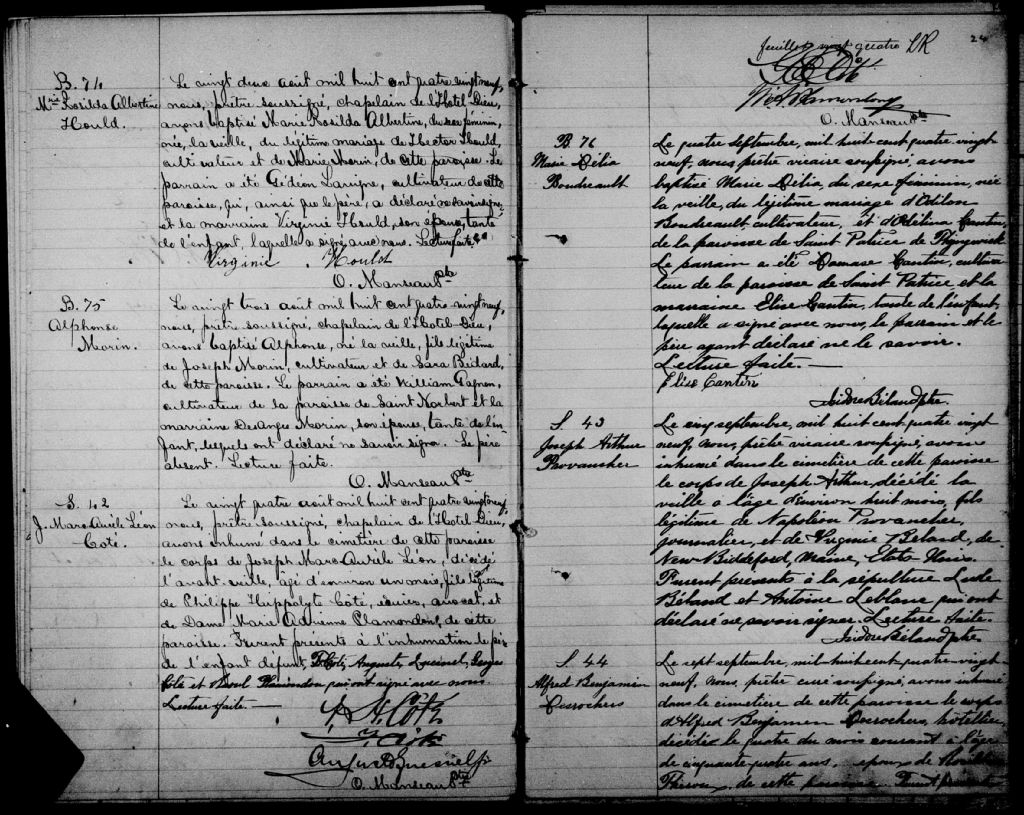 B. 74
Mrie Rosilda Albertine
Hould.
Le vingt deux août mil huit cent quatre vingt neuf,
nous, prêtre soussigné, chapelain de l'Hotel-Dieu,
avons baptisé Marie Rosilda Albertine, du sexe féminin,
née, la veille, du légitime mariage de Hector Hould,
cultivateur et de Marie Morin, de cette paroisse. Le
parrain a été Gédéon Lavigne, cultivateur de cette
paroisse, qui, ainsi que le père, a déclaré ne savoir signer
et la marraine Virginie Hould, son épouse, tante
de l'enfant, laquelle a signé avec nous. Lecture faite.
Virginie Hould
O. Manseau Ptre
B. 75
Alphonse
Morin.
Le vingt trois août mil huit cent quatre vingt neuf,
nous, prêtre soussigné, chapelain de l'Hotel-Dieu,
avons baptisé Alphonse, né la veille, fils légitime
de Joseph Morin, cultivateur et de Sara Bédard,
de cette paroisse. Le parrain a été William Gagnon,
cultivateur de la paroisse de Saint Norbert et la
marraine DesAnges Morin, son épouse, tante de l'en-
fant, lesquels ont déclaré ne savoir signer. Le père
absent. Lecture faite.
O. Manseau Ptre
S. 42
J. Marc Aurèle Léon
Coté.
Le vingt quatre août mil huit cent quatre vingt neuf,
nous, prêtre soussigné, chapelain de l'Hotel-Dieu,
avons inhumé dans le cimetière de cette paroisse
le corps de Joseph Marc Aurèle Léon, décédé
l'avant-veille, âgé d'environ un mois, fils légitime
de Philippe Hippolyte Côté, écuier, avocat, et
de Dame Marie Adrienne Plamondon, de cette
paroisse. Furent présents à l'inhumation le père
de l'enfant défunt, Auguste Quesnel, Georges
Côté et Raoul Plamondon qui ont signé avec nous.
Lecture faite.
P. H. Côté
G. Côté
Auguste Quesnel fs
O. Manseau Ptre
24
feuillet vingt quatre LR
O. Manseau Ptre
B. 76
Marie Délia
Boudreault
Le quatre septembre, mil huit cent quatre vingt-
neuf, nous, prêtre vicaire soussigné, avons
baptisé Marie Délia, du sexe féminin, née
la veille, du légitime mariage d'Odilon
Boudreault, cultivateur, et d'Odélina Cantin,
de la paroisse de Saint Patrice de Tingwick
Le parrain a été Damase Cantin, cultiva-
teur de la paroisse de Saint Patrice et la
marraine Elise Cantin, tante de l'enfant,
laquelle a signé avec nous, le parrain et le
père ayant déclaré ne le savoir.
Lecture faite.
Elise Cantin
Isidore Béland ptre.
S. 43
Joseph Arthur
Provancher
Le cinq septembre, mil huit cent quatre vingt
neuf, nous, prêtre vicaire soussigné, avons
inhumé dans le cimetière de cette paroisse
le corps de Joseph Arthur, décédé la
veille à l'âge d'environ huit mois, fils
légitime de Napoléon Provancher,
journalier, et de Virginie Béland, de
New Biddeford, Maine, Etats Unis.
Furent présents à la sépulture Lude
Béland et Antoine Leblanc qui ont
déclaré ne savoir signer. Lecture faite.
Isidore Béland ptre
S. 44
Alfred Benjamin
Desrochers
Le sept septembre, mil huit cent quatre-vingt
neuf, nous, prêtre curé soussigné, avons inhumé
dans le cimetière de cette paroisse le corps
d'Alfred Benjamin Desrochers, hôtellier,
décédé le quatre du mois courant à l'âge
de cinquante quatre ans, époux de
de cette paroisse. Furent présents